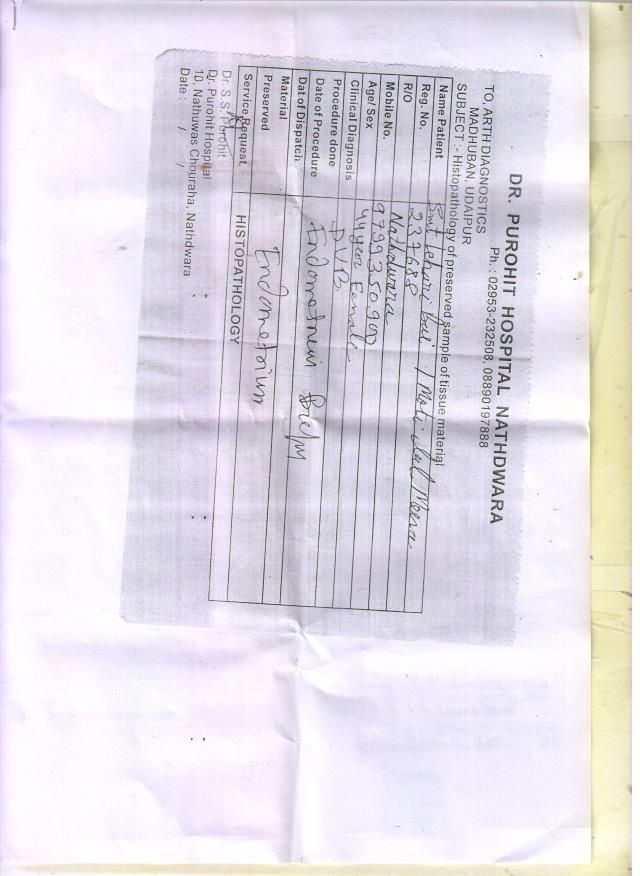 DR. PUROHIT HOSPITAL NATHDWARA
Ph. : 02953-232508, 08890197888
TO, ARTH DIAGNOSTICS
MADHUBAN, UDAIPUR
SUBJECT :- Histopathology of preserved sample of tissue material
Name Patient Smt bai / Moti lal Meena
Reg. No. 237688
R/O Nathdwara
Mobile No.
Age/ Sex 44 year Female
Clinical Diagnosis DUB
Procedure done
Date of Procedure Endometrium
Dat of Dispatch
Material
Preserved Endometrium
Service Request. HISTOPATHOLOGY
Dr. S.S. Purohit
Dr. Purohit Hospital
10, Nathuwas Chouraha, Nathdwara
Date : / /